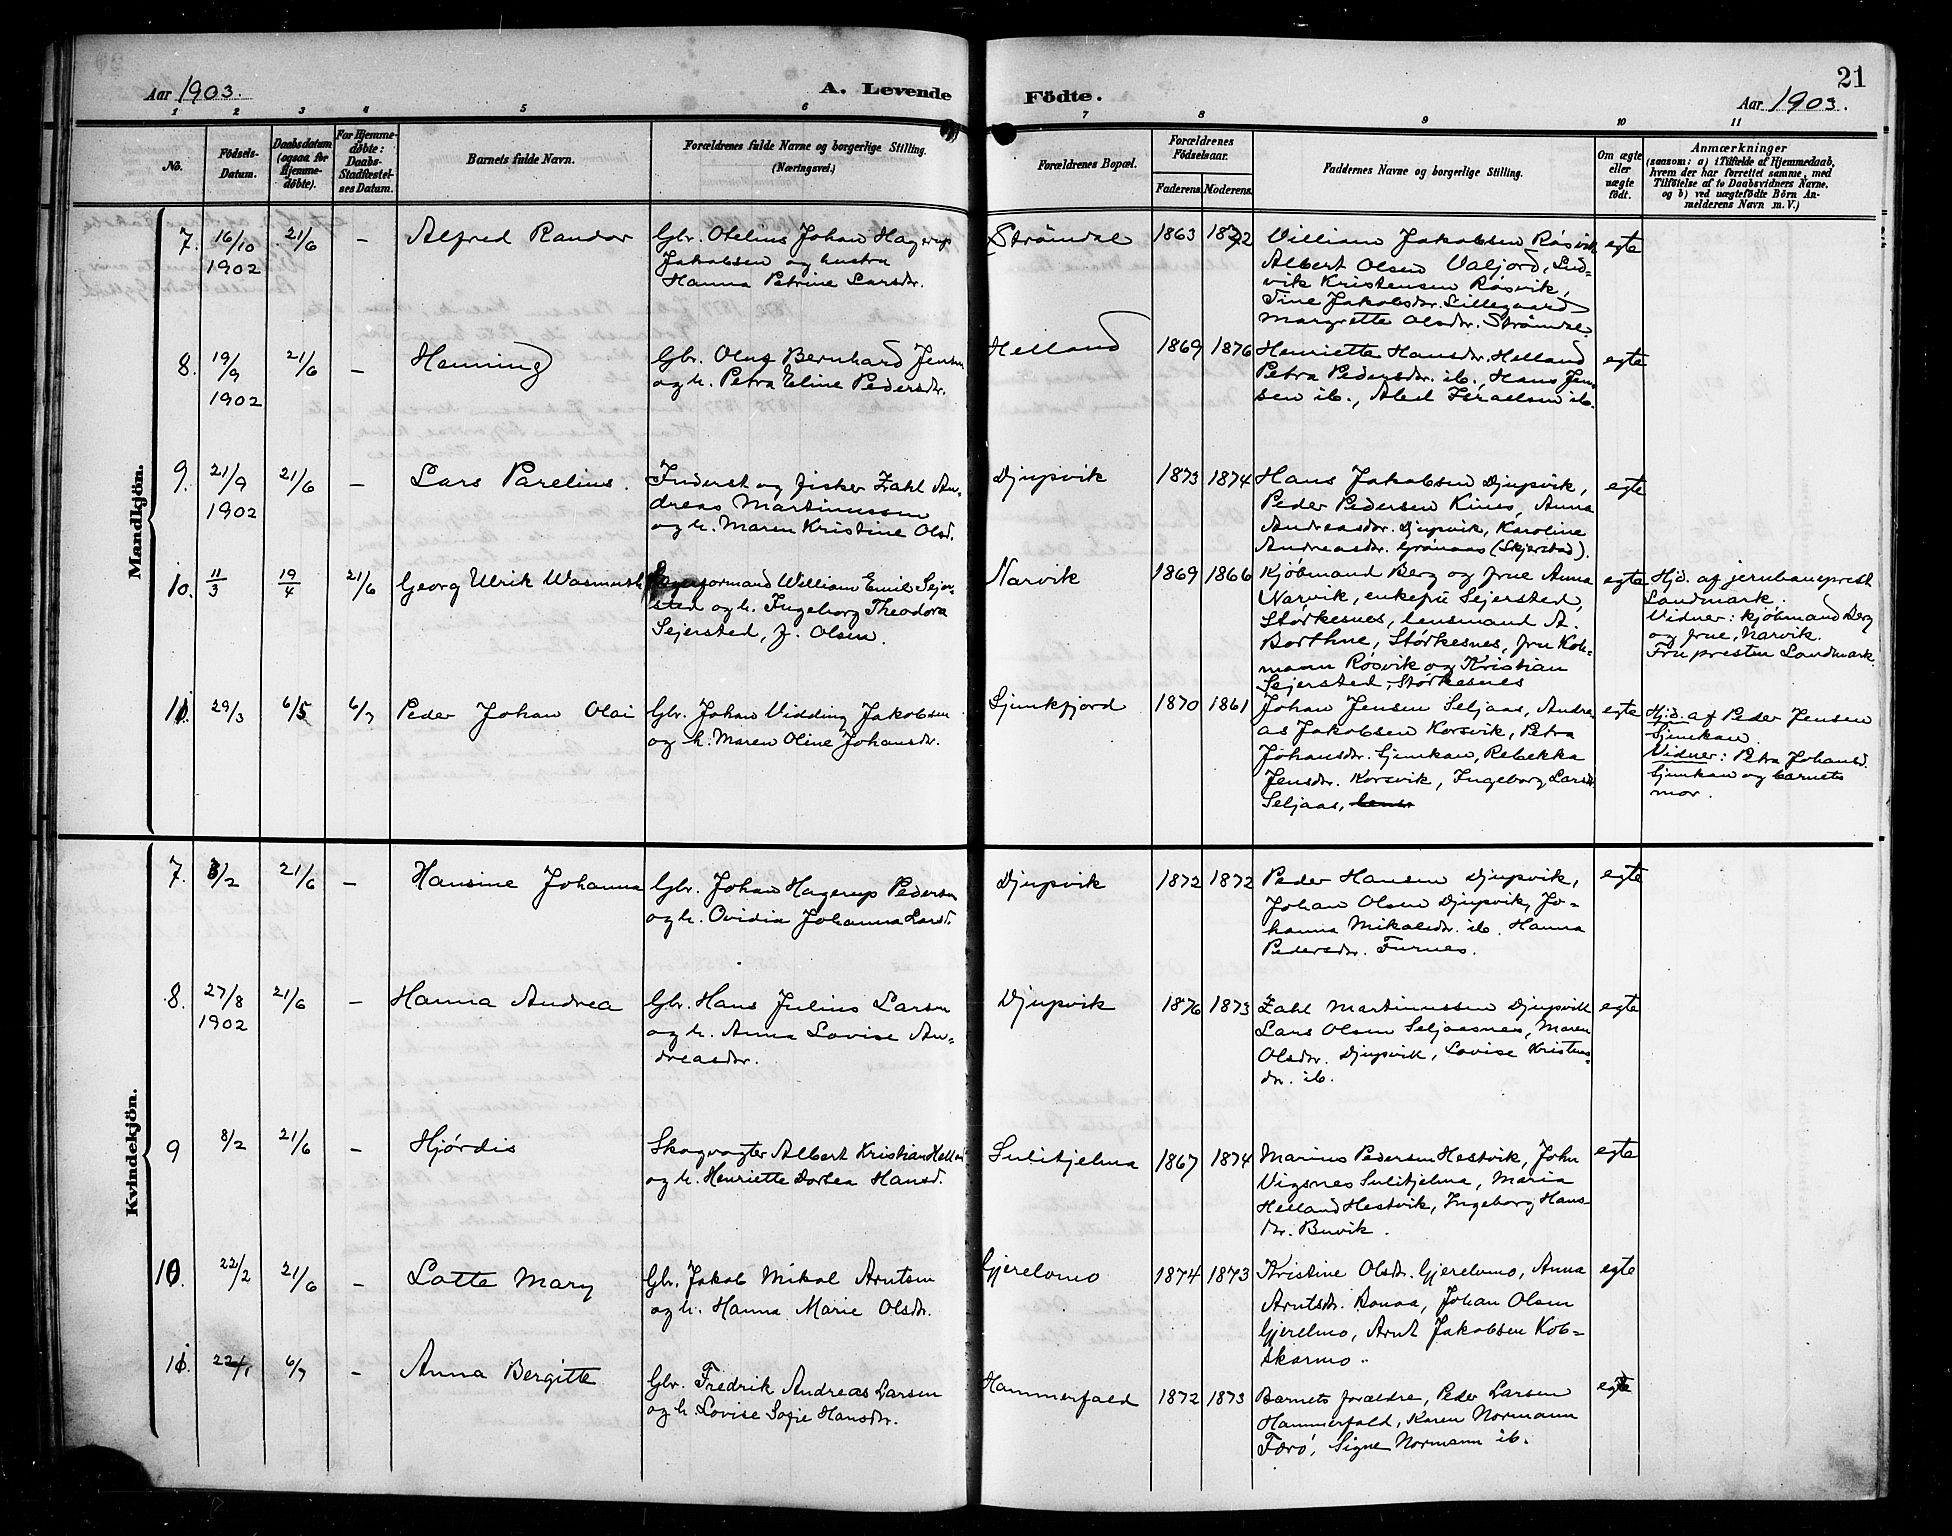 21
Aar 1903.
A. Levende
Fødte.
Aar 1903.
1 2 3 4 5 6 7 8 9 10 11
No.
Fødsels-
Datum.
Daabsdatum
(ogsaa for
Hjemme-
døbte).
For Hjemme-
døbte:
Daabs-
Stadfæstel-
ses Datum.
Barnets fulde Navn.
Forældrenes fulde Navne og borgerlige Stilling.
(Næringsvei.)
Forældrenes Bopæl.
Forældrenes
Fødselsaar.
Faderens. Moderens.
Faddernes Navne og borgerlige Stilling.
Om ægte
eller
uægte
født.
Anmærkninger
(saasom: a) i Tilfælde af Hjemmedaab,
hvem der har forrettet samme, med
Tilføielse af to Daabsvidners Navne,
og b) ved uægtefødte Børn An-
melderens Navn m. V.)
Mandkjön.
7. 16/10
1902
21/6
–
Alfred Randor
Gbr. Otelius Johan Hagerup
Jakobsen og hustru
Hanna Petrine Larsdr.
Strømdal
1863 1872
William Jakobsen Røsvik
Albert Olsen Valjord, Lud-
vik Kristensen Røsvik,
Tine Jakobsdr. Lillegaard
Margrette Olsdr. Strømdal
egte
8. 19/9
1902
21/6
–
Henning
Gbr. Oluf Bernhard Jensen
og h. Petra Eline Pedersdr.
Helland
1869 1876
Henriette Hansdr. Helland
Petra Pedersdr. ib., Hans Jen-
sen ib., Abel Israelsen ib.
egte
9. 21/9
1902
21/6
–
Lars Parelius.
Inderst og fisker Zahl An-
dreas Martinussen
og h. Maren Kristine Olsd.
Djupvik
1873 1874
Hans Jakobsen Djupvik,
Peder Pedersen Kines, Anna
Andreasdr. Djupvik, Karoline
Andreasdr. Grønaas (Skjerstad).
egte
10. 11/3
19/4
21/6
Georg Ulrik Wasmuth
William Emil Sejer-
sted og h. Ingeborg Theodora
Sejersted, f. Olsen.
Narvik
1869 1866
Kjøbmand Berg og frue Anna
Narvik, enkefru Sejersted,
Størkesnes, lensmand A.
Borthne, Størkesnes, fru Kob-
maan Røsvik og Kristian
Sejersted, Størkesnes
egte
Hjd. af jernbaneprest
Landmark.
Vidner: kjøbmand Berg
og frue, Narvik.
Fru presten Landmark
11. 29/3
6/5
6/7
Peder Johan Olai
Gbr. Johan Vidding Jakobsen
og h. Maren Oline Johansdr.
Sjunkfjord
1870 1861
Johan Jensen Seljaas, Andre-
as Jakobsen Korsvik, Petra
Johansdr. Sjunkan, Rebekka
Jensdr. Korsvik, Ingeborg Larsdr
Seljaas,
egte
Hjd. af Peder Jensen
Sjunkan.
Vidner: Petra Johansd.
Sjunkan og barnets
mor.
Kvindekjön.
7. 3/2
21/6
–
Hansine Johanna
Gbr. Johan Hagerup Pedersen
og h. Ovidia Johanna Larsd.
Djupvik
1872 1872
Peder Hansen Djupvik,
Johan Olsen Djupvik, Jo-
hanna Mikalsdr. ib. Hanna
Pedersdr. Furnes.
egte
8. 27/8
1902
21/6
–
Hanna Andrea
Gbr. Hans Julius Larsen
og h. Anna Lovise An-
dreasdr.
Djupvik
1876 1873
Zahl Martinussen Djupvik
Lars Olsen Seljaasnes, Maren
Olsdr. Djupvik, Lovise Kristens-
dr. ib.
egte
9 8/2
21/6
–
Hjørdis
Skogvogter Albert Kristian Helland
og h. Henriette Dortea Hansd.
Sulitjelma
1867 1874
Marius Pedersen Hestvik, John
Vigsnes Sulitjelma, Maria
Helland Hestvik, Ingeborg Hans-
dr. Buvik.
egte
10. 22/2
21/6
–
Lotte Mary
Gbr. Jakob Mikal Arntsen
og h. Hanna Marie Olsdr.
Gjerelvmo
1874 1873
Kristine Olsdr. Gjerelvmo, Anna
Arntsdr. Bonaa, Johan Olsen
Gjerelmo, Arnt Jakobsen Kob-
skarmo.
egte
11.
6/7
–
Anna Bergitte
Gbr. Fredrik Andreas Larsen
og h. Lovise Sofie Hansdr.
Hammerfald
1872 1873
Barnets forældre, Peder Larsen
Hammerfald, Karen Normann
Færø, Signe Normann ib.
egte